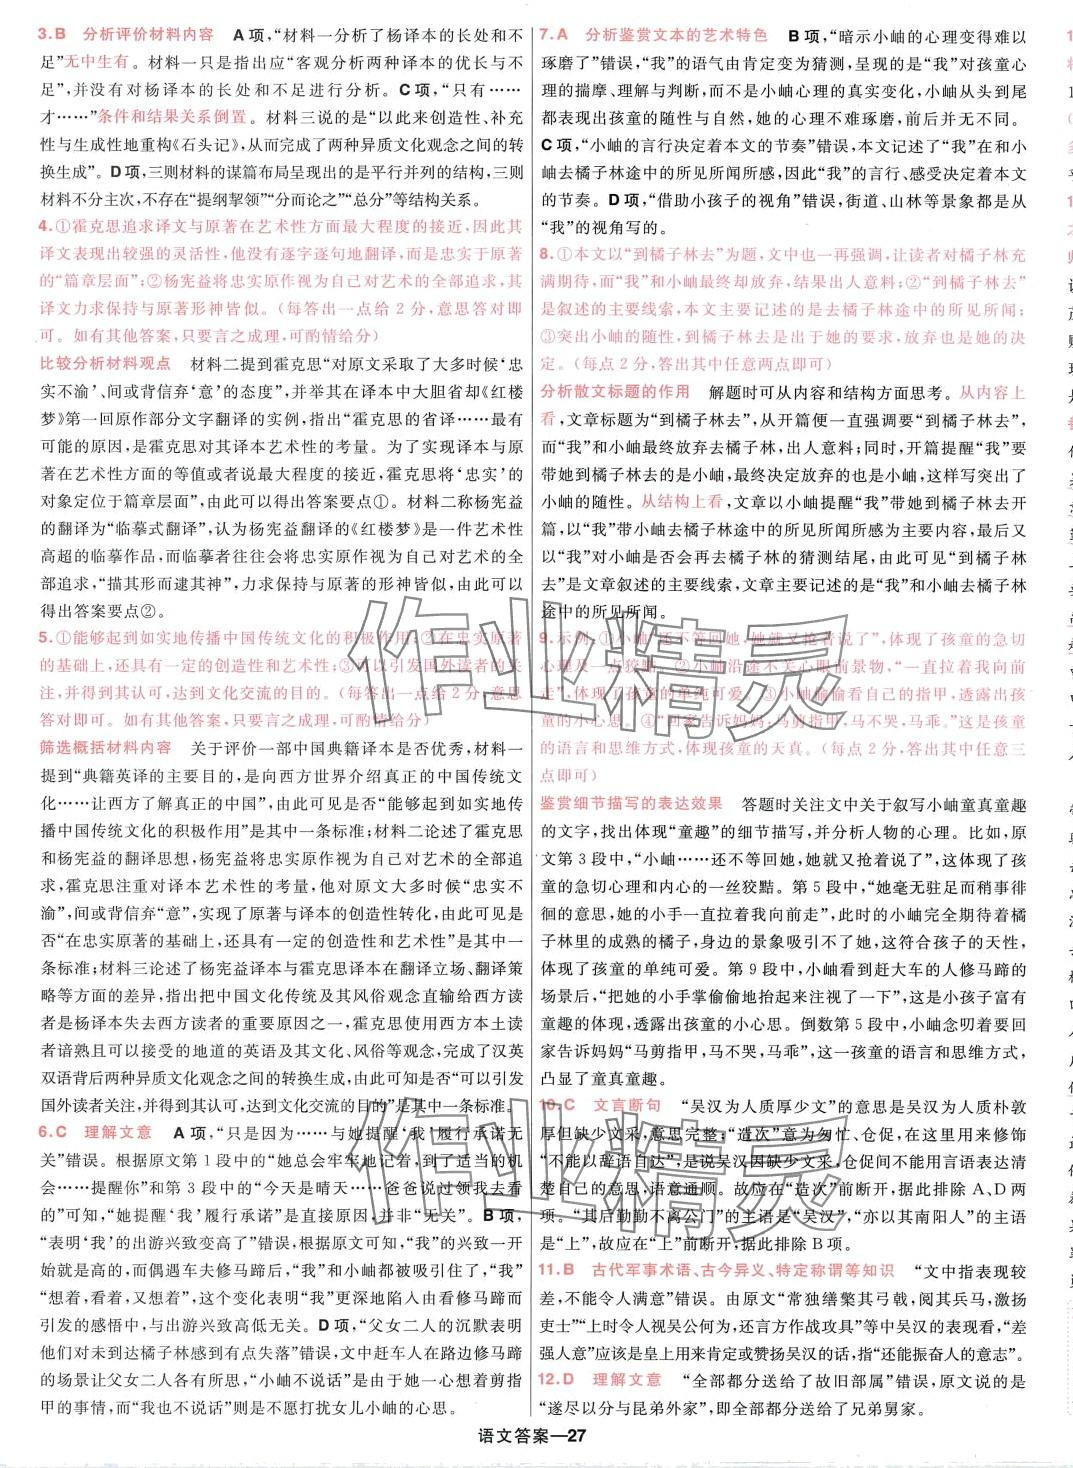 3.B 分析评价材料内容 A项，“材料一分析了杨译本的长处和不
足”无中生有。材料一只是指出应“客观分析两种译本的优长与不
足”，并没有对杨译本的长处和不足进行分析。C项，“只有……
才……”条件和结果关系倒置。材料三说的是“以此来创造性、补充
性与生成性地重构《石头记》，从而完成了两种异质文化观念之间的转
换生成”。D项，三则材料的谋篇布局呈现出的是平行并列的结构，三则
材料不分主次，不存在“提纲挈领”“分而论之”“总分”等结构关系。
4.①霍克思追求译文与原著在艺术性方面最大程度的接近，因此其
译文表现出较强的灵活性，他没有逐字逐句地翻译，而是忠实于原著
的“篇章层面”；②杨宪益将忠实原作视为自己对艺术的全部追求，其
译文力求保持与原著形神皆似。（每答出一点给2分，意思答对即
可。如有其他答案，只要言之成理，可酌情给分）
比较分析材料观点 材料二提到霍克思“对原文采取了大多时候‘忠
实不渝’、间或背信弃‘意’的态度”，并举其在译本中大胆省却《红楼
梦》第一回原作部分文字翻译的实例，指出“霍克思的省译……最有
可能的原因，是霍克思对其译本艺术性的考量。为了实现译本与原
著在艺术性方面的等值或者说最大程度的接近，霍克思将‘忠实’的
对象定位于篇章层面”，由此可以得出答案要点①。材料二称杨宪益
的翻译为“临摹式翻译”，认为杨宪益翻译的《红楼梦》是一件艺术性
高超的临摹作品，而临摹者往往会将忠实原作视为自己对艺术的全
部追求，“描其形而逮其神”，力求保持与原著的形神皆似，由此可以
得出答案要点②。
5.①能够起到如实地传播中国传统文化的积极作用；②在忠实原著
的基础上，还具有一定的创造性和艺术性；③可以引发国外读者的关
注，并得到其认可，达到文化交流的目的。（每答出一点给2分，意思
答对即可。如有其他答案，只要言之成理，可酌情给分）
筛选概括材料内容 关于评价一部中国典籍译本是否优秀，材料一
提到“典籍英译的主要目的，是向西方世界介绍真正的中国传统文
化……让西方了解真正的中国”，由此可见是否“能够起到如实地传
播中国传统文化的积极作用”是其中一条标准；材料二论述了霍克思
和杨宪益的翻译思想，杨宪益将忠实原作视为自己对艺术的全部追
求，霍克思注重对译本艺术性的考量，他对原文大多时候“忠实不
渝”，间或背信弃“意”，实现了原著与译本的创造性转化，由此可见是
否“在忠实原著的基础上，还具有一定的创造性和艺术性”是其中一
条标准；材料三论述了杨宪益译本与霍克思译本在翻译立场、翻译策
略等方面的差异，指出把中国文化传统及其风俗观念直输给西方读
者是杨译本失去西方读者的重要原因之一，霍克思使用西方本土读
者谙熟且可以接受的地道的英语及其文化、风俗等观念，完成了汉英
双语背后两种异质文化观念之间的转换生成，由此可知是否“可以引发
国外读者关注，并得到其认可，达到文化交流的目的”是其中一条标准。
6.C 理解文意 A项，“只是因为……与她提醒‘我’履行承诺无
关”错误。根据原文第1段中的“她总会牢牢地记着，到了适当的机
会……提醒你”和第3段中的“今天是晴天……爸爸说过领我去看
的”可知，“她提醒‘我’履行承诺”是直接原因，并非“无关”。B项，
“表明‘我’的出游兴致变高了”错误，根据原文可知，“我”的兴致一开
始就是高的，而偶遇车夫修马蹄后，“我”和小岫都被吸引住了，“我”
“想着，看着，又想着”，这个变化表明“我”更深地陷入由看修马蹄而
引发的感悟中，与出游兴致高低无关。D项，“父女二人的沉默表明
他们对未到达橘子林感到有点失落”错误，文中赶车人在路边修马蹄
的场景让父女二人各有所思，“小岫不说话”是由于她一心想着剪指
甲的事情，而“我也不说话”则是不愿打扰女儿小岫的心思。
7.A 分析鉴赏文本的艺术特色 B项，“暗示小岫的心理变得难以
琢磨了”错误，“我”的语气由肯定变为猜测，呈现的是“我”对孩童心
理的揣摩、理解与判断，而不是小岫心理的真实变化，小岫从头到尾
都表现出孩童的随性与自然，她的心理不难琢磨，前后并无不同。
C项，“小岫的言行决定着本文的节奏”错误，本文记述了“我”在和小
岫去橘子林途中的所见所闻所感，因此“我”的言行、感受决定着本文
的节奏。D项，“借助小孩子的视角”错误，街道、山林等景象都是从
“我”的视角写的。
8.①本文以“到橘子林去”为题，文中也一再强调，让读者对橘子林充
满期待，而“我”和小岫最终却放弃，结果出人意料；②“到橘子林去”
是叙述的主要线索，本文主要记述的是去橘子林途中的所见所闻；
③突出小岫的随性，到橘子林去是出于她的要求，放弃也是她的决
定。（每点2分，答出其中任意两点即可）
分析散文标题的作用 解题时可从内容和结构方面思考。从内容上
看，文章标题为“到橘子林去”，从开篇便一直强调要“到橘子林去”，
而“我”和小岫最终放弃去橘子林，出人意料；同时，开篇提醒“我”要
带她到橘子林去的是小岫，最终决定放弃的也是小岫，这样写突出了
小岫的随性。从结构上看，文章以小岫提醒“我”带她到橘子林去开
篇，以“我”带小岫去橘子林途中的所见所闻所感为主要内容，最后又
以“我”对小岫是否会再去橘子林的猜测结尾，由此可见“到橘子林
去”是文章叙述的主要线索，文章主要记述的是“我”和小岫去橘子林
途中的所见所闻。
9.示例：①小岫“还不等回她，她就又抢着说了”，体现了孩童的急切
心理及一点狡黠。②小岫沿途不关心眼前景物，“一直拉着我向前
走”，体现了孩童的单纯可爱。③小岫偷偷看自己的指甲，透露出孩
童的小心思。④“回家告诉妈妈：马剪指甲，马不哭，马乖。”这是孩童
的语言和思维方式，体现孩童的天真。（每点2分，答出其中任意三
点即可）
鉴赏细节描写的表达效果 答题时关注文中关于叙写小岫童真童趣
的文字，找出体现“童趣”的细节描写，并分析人物的心理。比如，原
文第3段中，“小岫……还不等回她，她就又抢着说了”，这体现了孩
童的急切心理和内心的一丝狡黠。第5段中，“她毫无驻足而稍事徘
徊的意思，她的小手一直拉着我向前走”，此时的小岫完全期待着橘
子林里的成熟的橘子，身边的景象吸引不了她，这符合孩子的天性，
体现了孩童的单纯可爱。第9段中，小岫看到赶大车的人修马蹄的
场景后，“把她的小手掌偷偷地抬起来注视了一下”，这是小孩子富有
童趣的体现，透露出孩童的小心思。倒数第5段中，小岫念叨着要回
家告诉妈妈“马剪指甲，马不哭，马乖”，这一孩童的语言和思维方式，
凸显了童真童趣。
10.C 文言断句 “吴汉为人质厚少文”的意思是吴汉为人质朴敦
厚但缺少文采，意思完整；“造次”意为匆忙、仓促，在这里用来修饰
“不能以辞语自达”，是说吴汉因缺少文采，仓促间不能用言语表达清
楚自己的意思，语意通顺。故应在“造次”前断开，据此排除A、D两
项。“其后勤勤不离公门”的主语是“吴汉”，“亦以其南阳人”的主语
是“上”，故应在“上”前断开，据此排除B项。
11.B 古代军事术语、古今异义、特定称谓等知识 “文中指表现较
差，不能令人满意”错误。由原文“常独缮檠其弓戟，阅其兵马，激扬
吏士”“上时令人视吴公何为，还言方作战攻具”等中吴汉的表现看，“差
强人意”应该是皇上用来肯定或赞扬吴汉的话，指“还能振奋人的意志”。
12.D 理解文意 “全部都分送给了故旧部属”错误，原文说的是
“遂尽以分与昆弟外家”，即全部都分送给了兄弟舅家。
语文答案—27
作业精灵
作业精灵